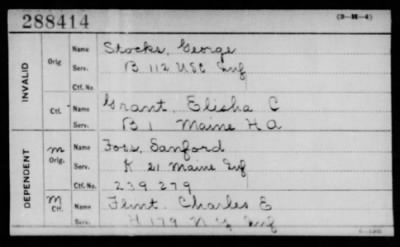 288414 (3-M-4)
INVALID
Orig. Name Stocks, George
Serv. B 112 USC Inf
Ctf. No.
Ctf. Name Grant, Elisha C
Serv. B 1 Maine H A
DEPENDENT
M Orig. Name Foss, Sanford
Serv. K 21 Maine Inf
Ctf. No. 239 279
M Ctf. Name Flint, Charles E
Serv. H 179 N Y Inf